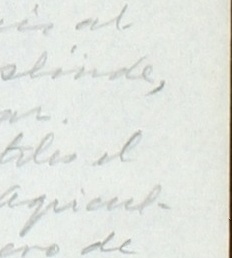 al
slinde,
ar.
tiles el
Agricul-
ero de